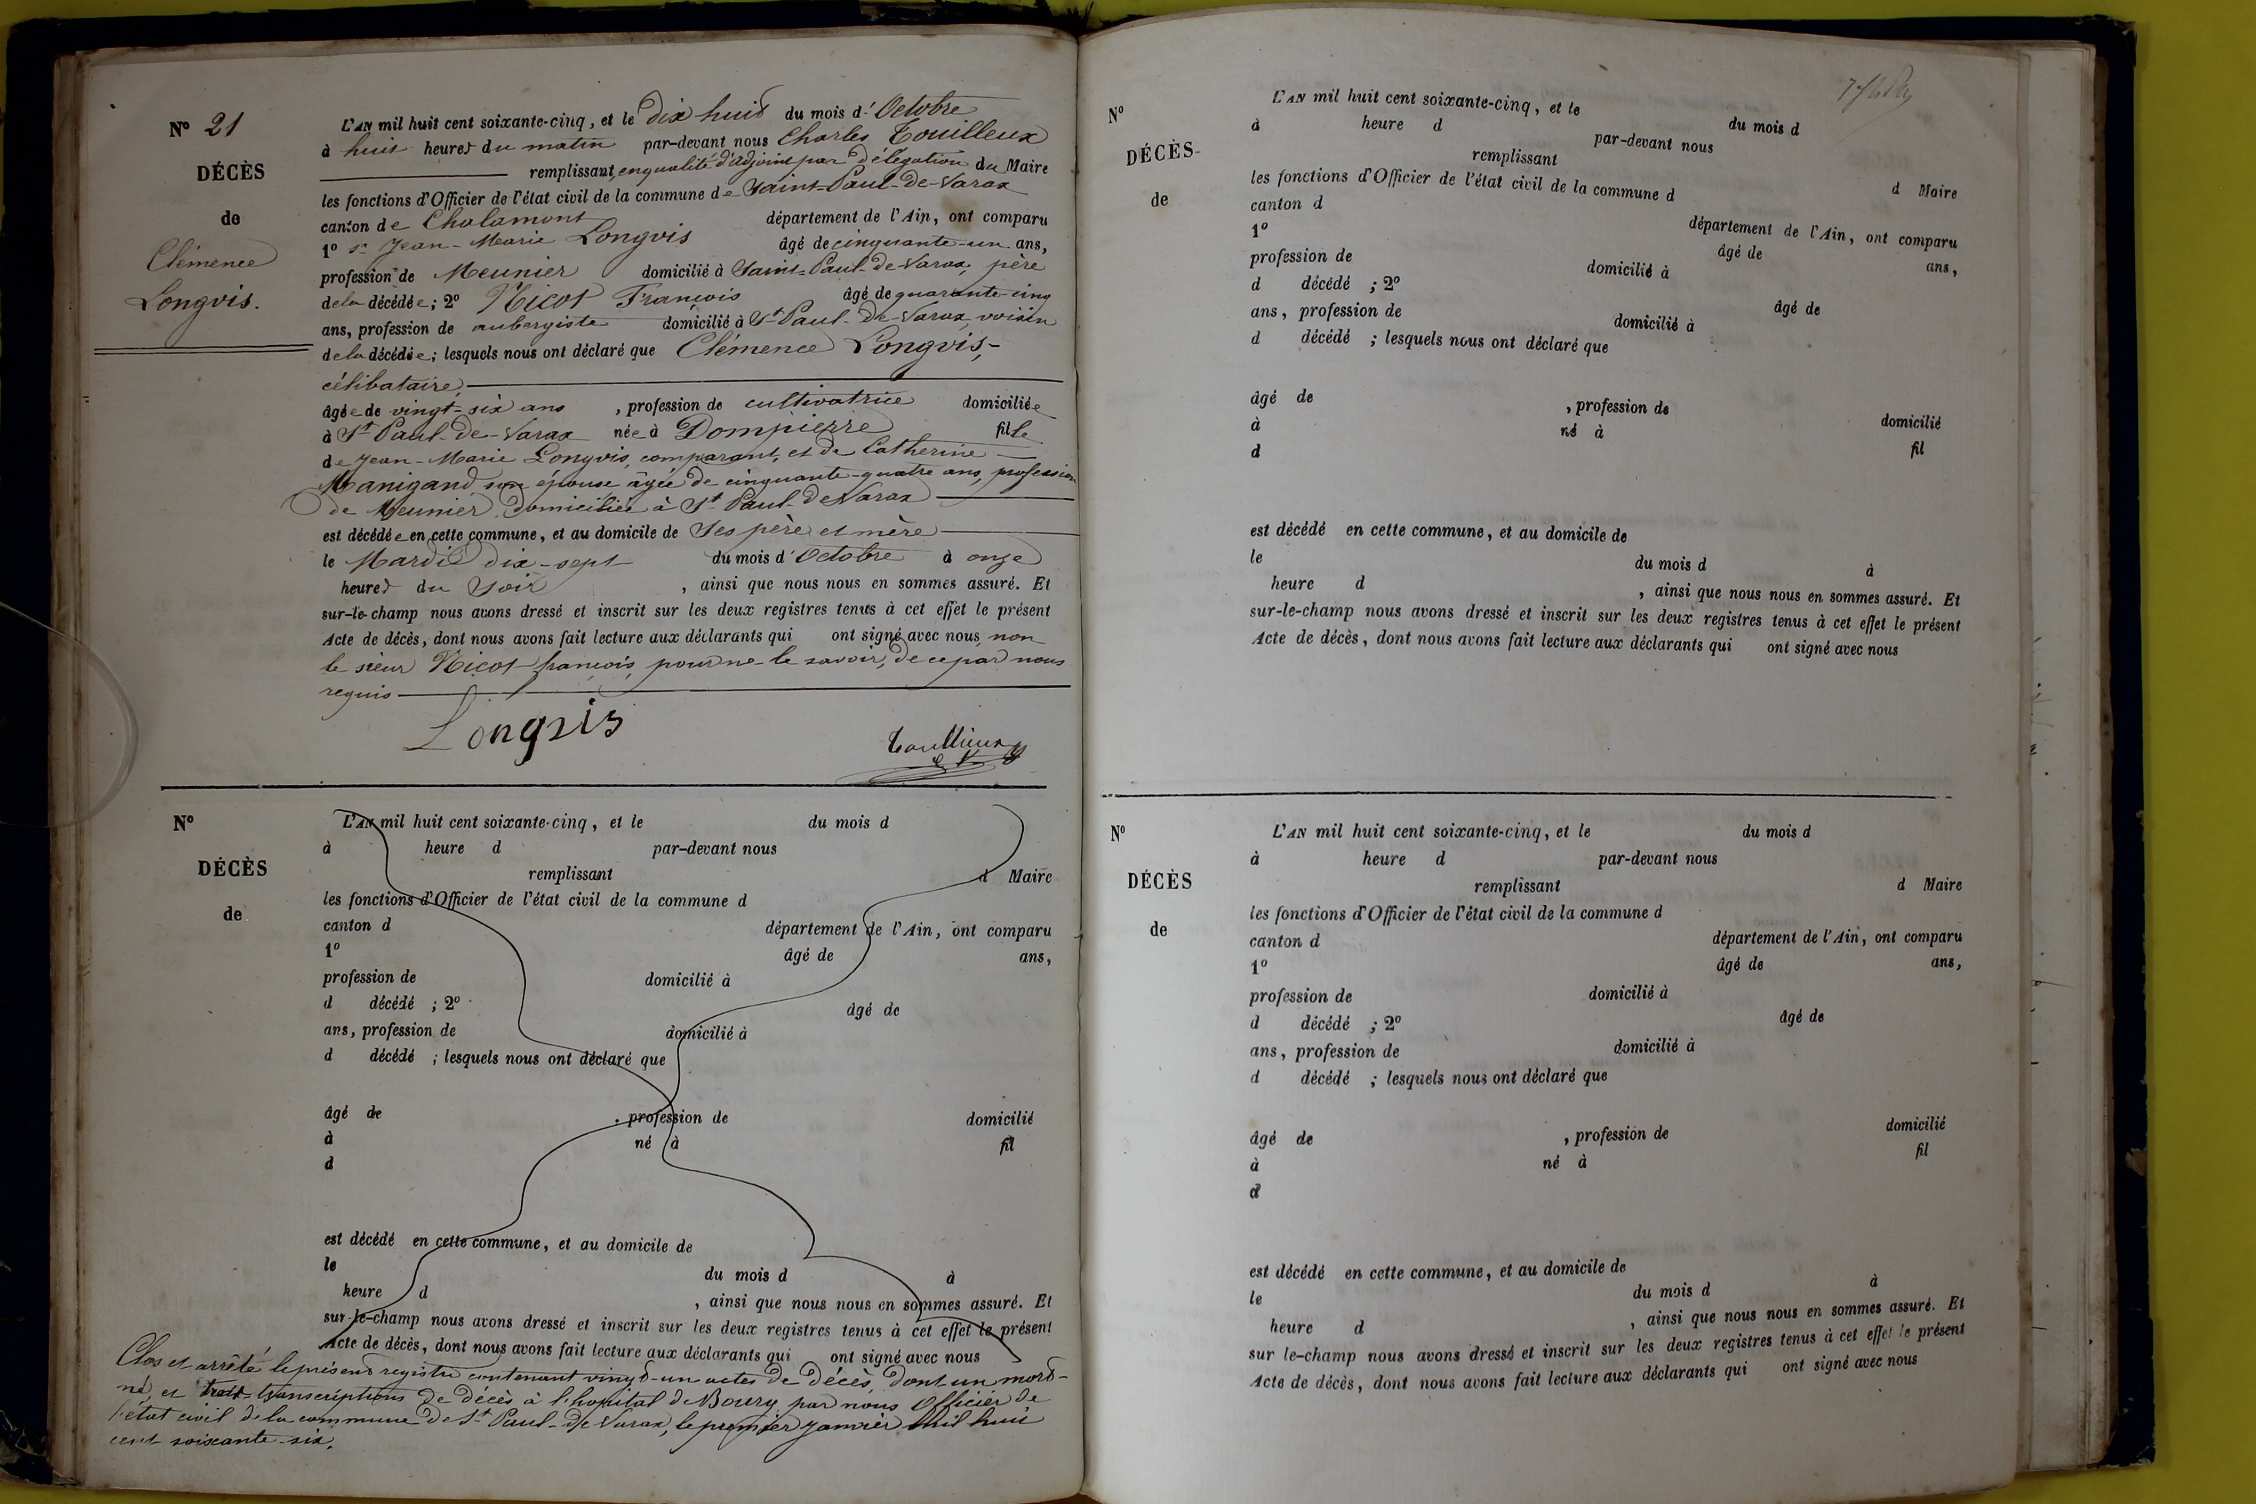 N° 21
DÉCÈS
de
Clémence
Longvis.
L'AN mil huit cent soixante-cinq, et le dix huit du mois d'Octobre
à huit heures du matin par-devant nous Charles Touilleux
remplissant, en qualité d'adjoint par délégation du Maire
les fonctions d'Officier de l'état civil de la commune de Saint-Paul-de-Varax
canton de Chalamont département de l'Ain, ont comparu
1° sr Jean-Marie Longvis âgé de cinquante-un ans,
profession de Meunier domicilié à Saint-Paul-de-Varax, père
de la décédée; 2° Nicot François âgé de quarante-cinq
ans, profession de aubergiste domicilié à St Paul-de-Varax, voisin
de la décédée; lesquels nous ont déclaré que Clémence Longvis,
célibataire,
âgée de vingt-six ans, profession de cultivatrice domiciliée
à St Paul-de-Varax née à Dompierre fille
de Jean-Marie Longvis, comparant, et de Catherine
Manigand son épouse âgée de cinquante-quatre ans, profession
de Meunier domiciliée à St Paul-de Varax
est décédée en cette commune, et au domicile de Ses père et mère
le Mardi dix-sept du mois d'Octobre à onze
heures du Soir, ainsi que nous nous en sommes assuré. Et
sur-le-champ nous avons dressé et inscrit sur les deux registres tenus à cet effet le présent
Acte de décès, dont nous avons fait lecture aux déclarants qui ont signé avec nous, non
le sieur Nicot françois, pour ne le savoir, de ce par nous
requis
Longvis
Touillieux
N°
DÉCÈS
de
L'AN mil huit cent soixante-cinq, et le du mois d
à heure d par-devant nous
remplissant d Maire
les fonctions d'Officier de l'état civil de la commune d
canton d département de l'Ain, ont comparu
1° âgé de ans,
profession de domicilié à
d décédé ; 2° âgé de
ans, profession de domicilié à
d décédé ; lesquels nous ont déclaré que
âgé de , profession de domicilié
à né à fil
d
est décédé en cette commune, et au domicile de
le du mois d à
heure d , ainsi que nous nous en sommes assuré. Et
sur-le-champ nous avons dressé et inscrit sur les deux registres tenus à cet effet le présent
Acte de décès, dont nous avons fait lecture aux déclarants qui ont signé avec nous
Clos et arrêté le présent registre contenant vingt-un actes de décès, dont un mort-
né, et transcriptions de décès à l'hopital de Bourg par nous Officier de
l'état civil de la commune de St Paul-de Varax, le premier janvier Mil huit
cent soixante-six.
N°
DÉCÈS
de
L'AN mil huit cent soixante-cinq, et le du mois d
à heure d par-devant nous
remplissant d Maire
les fonctions d'Officier de l'état civil de la commune d
canton d département de l'Ain, ont comparu
1° âgé de ans,
profession de domicilié à
d décédé ; 2° âgé de
ans, profession de domicilié à
d décédé ; lesquels nous ont déclaré que
âgé de , profession de domicilié
à né à fil
d
est décédé en cette commune, et au domicile de
le du mois d à
heure d , ainsi que nous nous en sommes assuré. Et
sur-le-champ nous avons dressé et inscrit sur les deux registres tenus à cet effet le présent
Acte de décès, dont nous avons fait lecture aux déclarants qui ont signé avec nous
N°
DÉCÈS
de
L'AN mil huit cent soixante-cinq, et le du mois d
à heure d par-devant nous
remplissant d Maire
les fonctions d'Officier de l'état civil de la commune d
canton d département de l'Ain, ont comparu
1° âgé de ans,
profession de domicilié à
d décédé ; 2° âgé de
ans, profession de domicilié à
d décédé ; lesquels nous ont déclaré que
âgé de , profession de domicilié
à né à fil
d
est décédé en cette commune, et au domicile de
le du mois d à
heure d , ainsi que nous nous en sommes assuré. Et
sur le-champ nous avons dressé et inscrit sur les deux registres tenus à cet effet le présent
Acte de décès, dont nous avons fait lecture aux déclarants qui ont signé avec nous